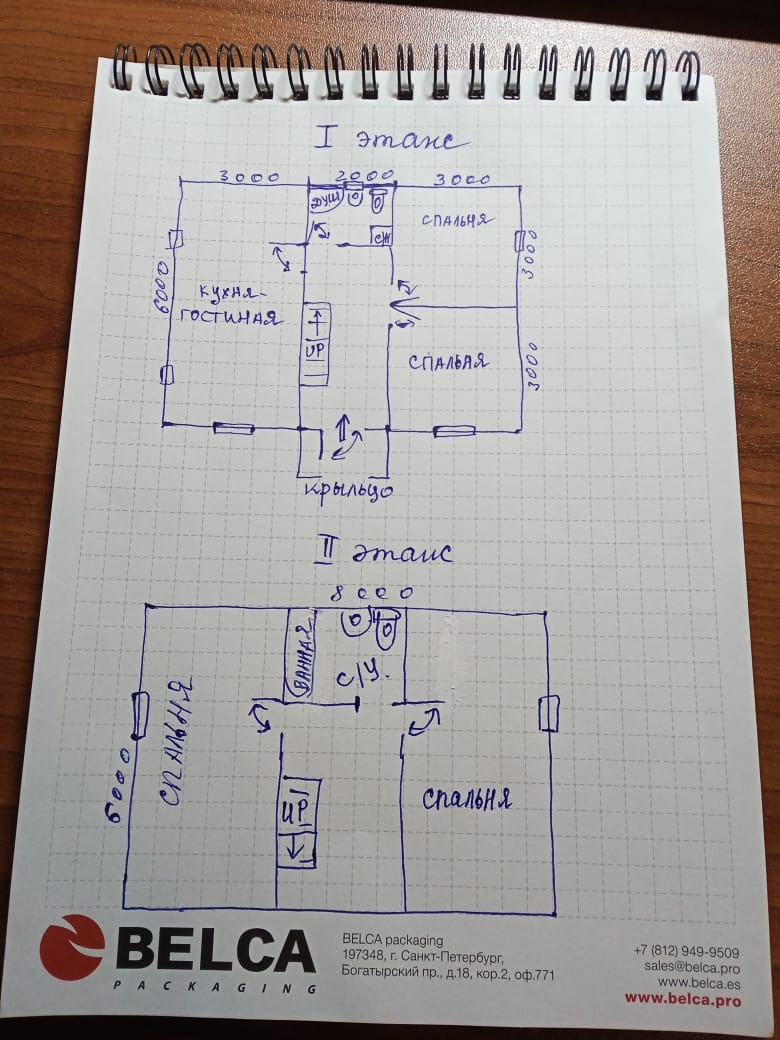 I этаж
3000 2000 3000
ДУШ
СПАЛЬНЯ
СМ
3000
6000
КУХНЯ-
ГОСТИНАЯ
UP
СПАЛЬНЯ
3000
КРЫЛЬЦО
II этаж
8000
ВАННАЯ
С/У.
СПАЛЬНЯ
6000
UP
СПАЛЬНЯ
BELCA
PACKAGING
BELCA packaging
197348, г. Санкт-Петербург,
Богатырский пр., д.18, кор.2, оф.771
+7 (812) 949-9509
sales@belca.pro
www.belca.es
www.belca.pro